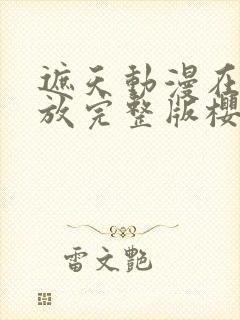 遮天動漫在
放完整版櫻
雷文艷